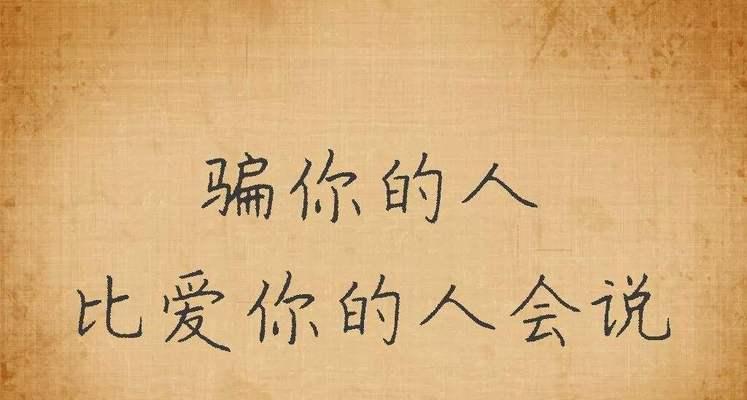 骗你的人
比爱你的人会说